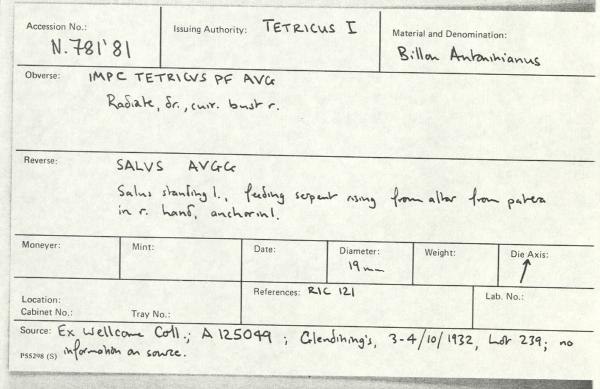 Accession No.: N.781'81
Issuing Authority: TETRICUS I
Material and Denomination: Billon Antoninianus
Obverse: IMPC TETRICVS PF AVG
Radiate, dr., cuir. bust r.
Reverse: SALVS AVGG
Salus standing l., feeding serpent rising from altar from patera
in r. hand, anchor in l.
Moneyer:
Mint:
Date:
Diameter: 19mm
Weight:
Die Axis: ↑
Location:
Cabinet No.: Tray No.:
References: RIC 121
Lab. No.:
Source: Ex Wellcome Coll.; A 125049 ; Glendining's, 3-4/10/1932, Lot 239; no
P55298 (S) information on source.